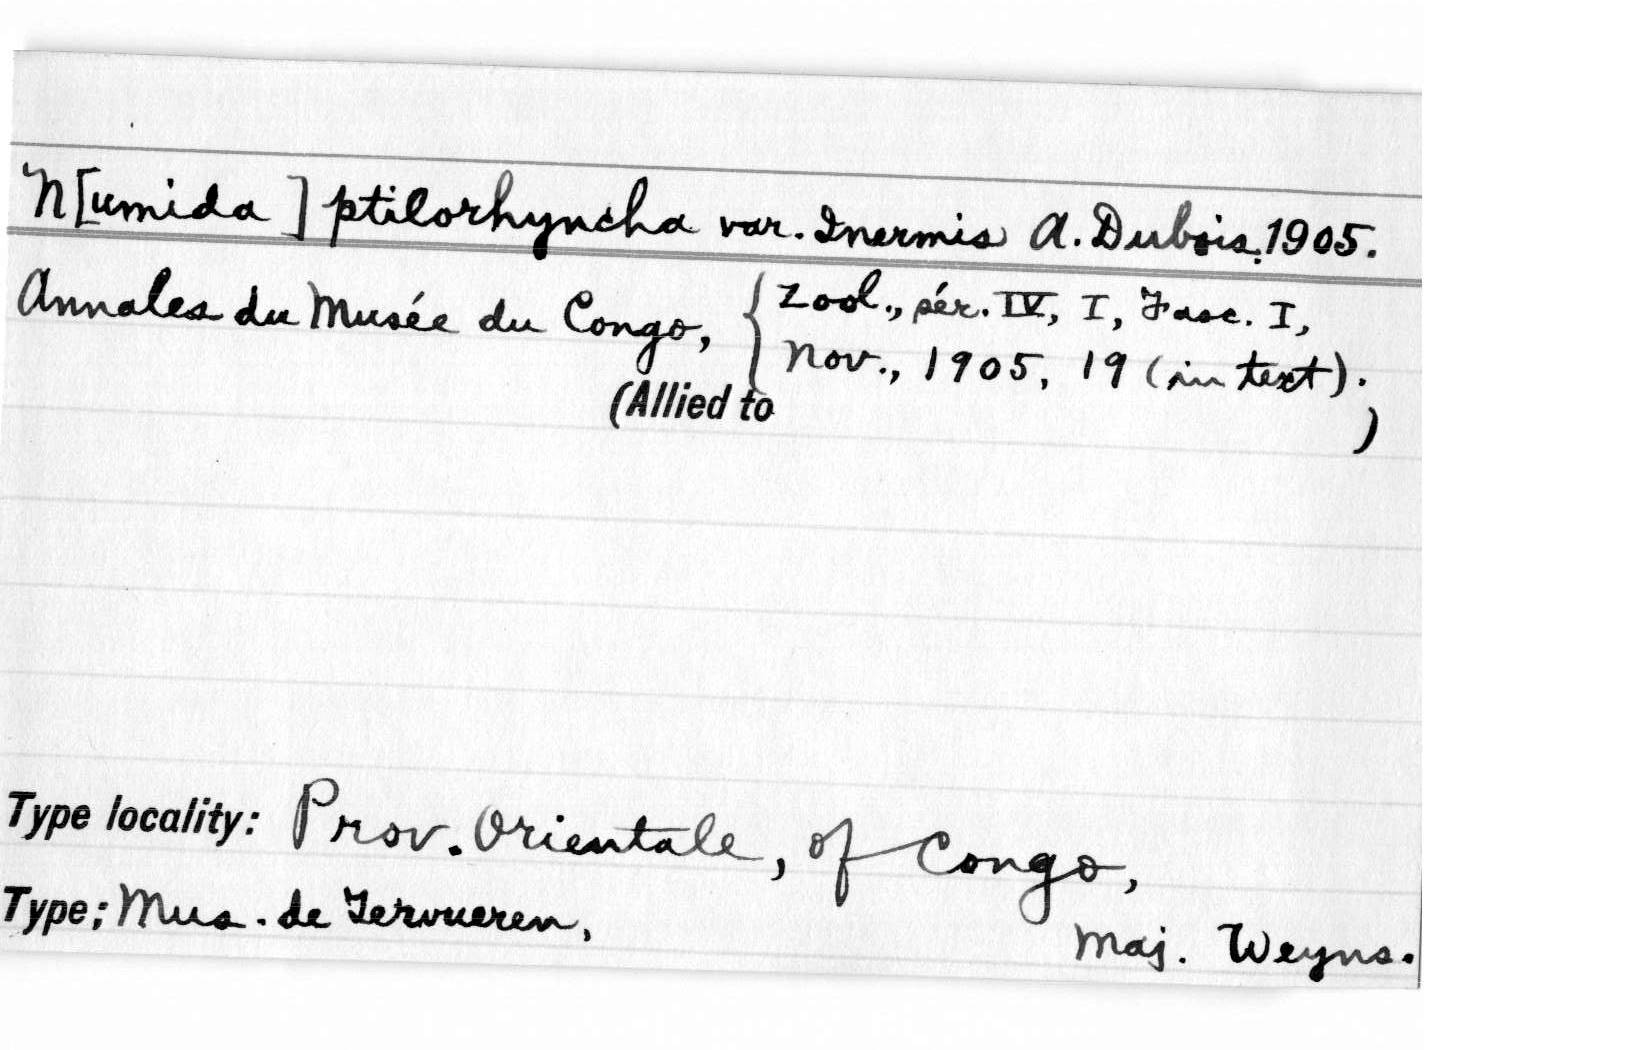 N[umida ] ptilorhyncha var. Inermis A. Dubois. 1905.
Annales du Musée du Congo, { Zool., sér. IV, I, Fasc. I,
Nov., 1905, 19 (in text).
(Allied to )
Type locality: Prov. Orientale, of Congo,
Type; Mus. de Tervueren,
Maj. Weyns.